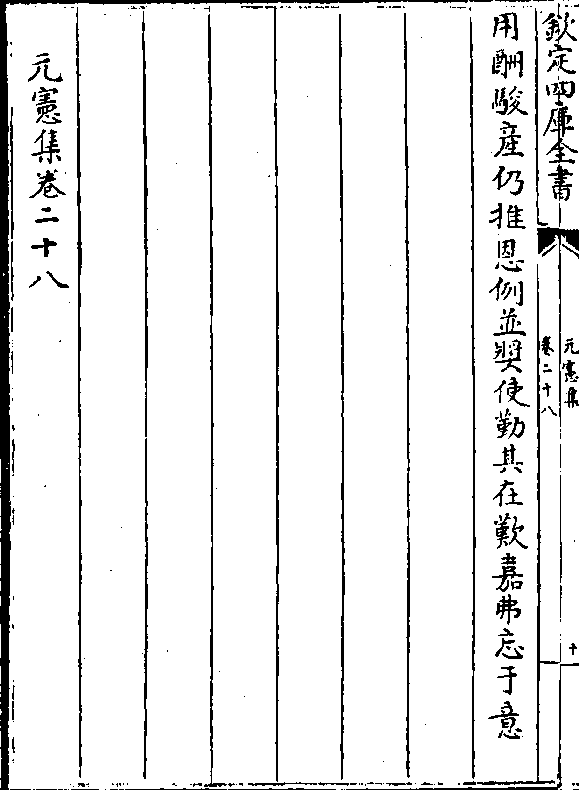 欽定四庫全書
元憲集
卷二十八
十
用酬駿産仍推恩例並奬使勤其在歎嘉弗忘于意
元憲集卷二十八